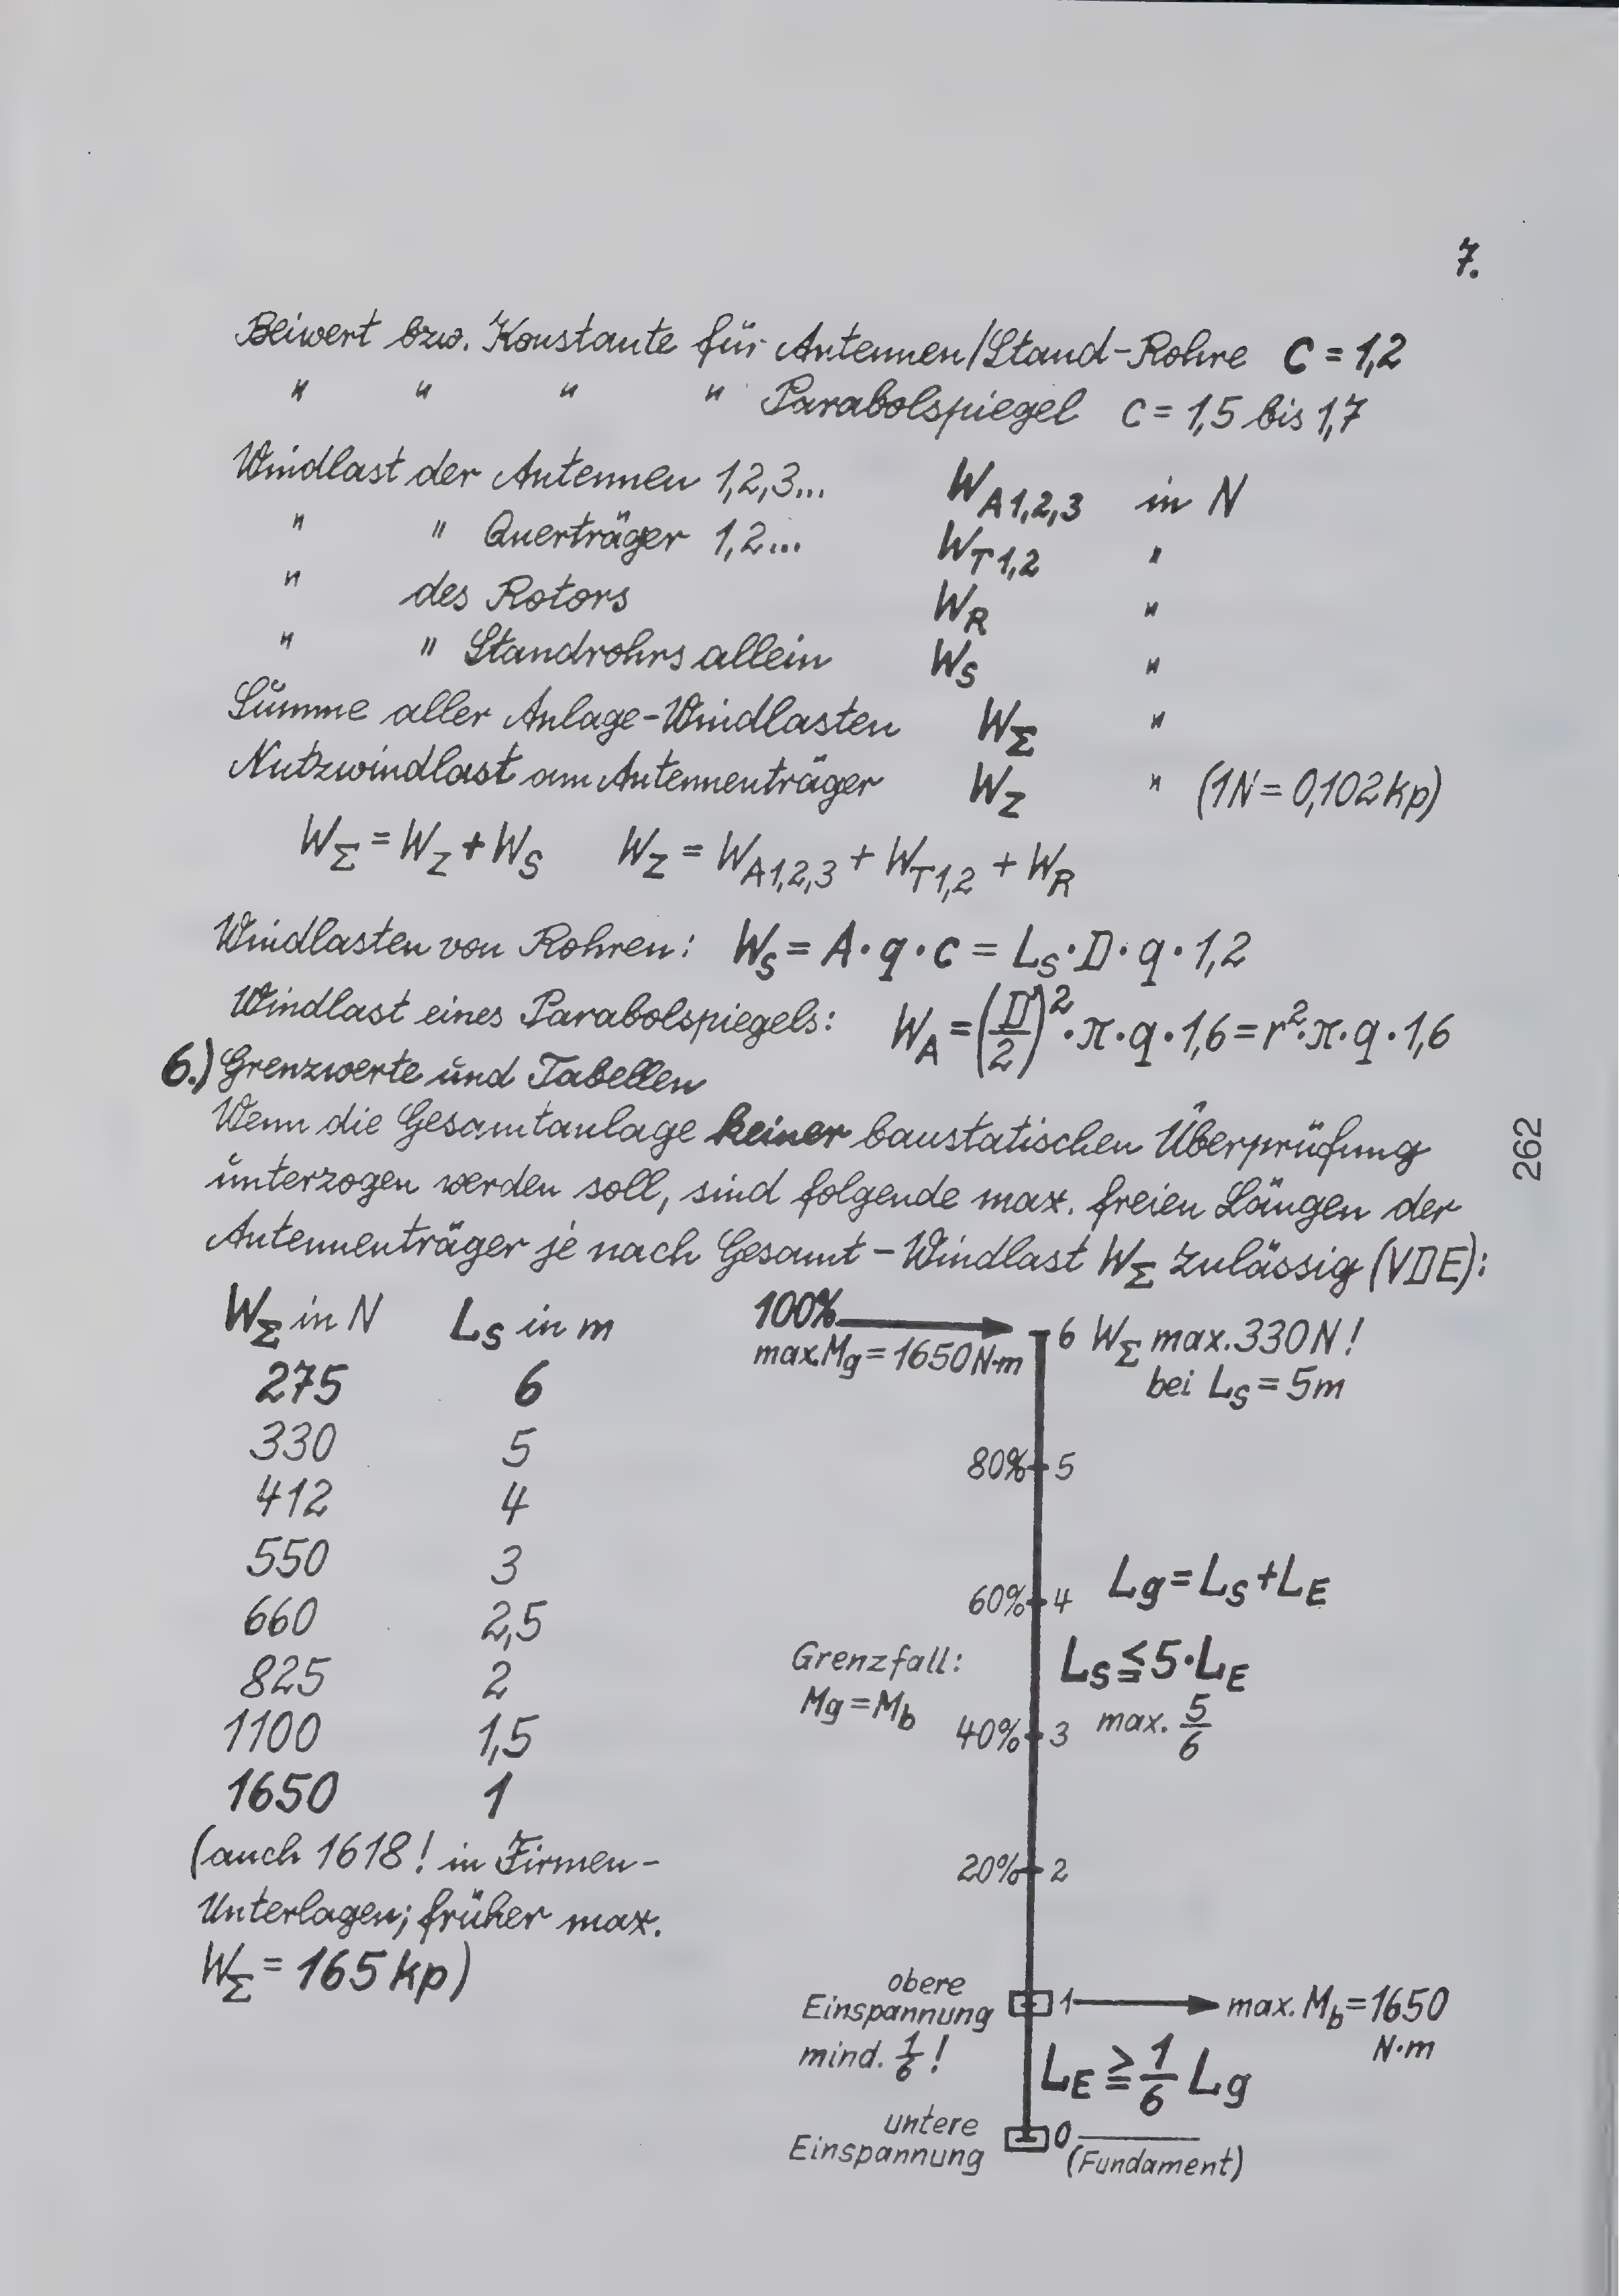 7.
Beiwert bzw. Konstante für Antennen/Stand-Rohre C = 1,2
" " " " Parabolspiegel C = 1,5 bis 1,7
Windlast der Antennen 1,2,3... W_A1,2,3 in N
" " Querträger 1,2... W_T1,2 "
" des Rotors W_R "
" " Standrohrs allein W_S "
Summe aller Anlage-Windlasten W_Σ "
Nutzwindlast am Antennenträger W_Z " (1N = 0,102 kp)
W_Σ = W_Z + W_S W_Z = W_A1,2,3 + W_T1,2 + W_R
Windlasten von Rohren: W_S = A · q · c = L_S · D · q · 1,2
Windlast eines Parabolspiegels: W_A = (D/2)² · π · q · 1,6 = r² · π · q · 1,6
6.) Grenzwerte und Tabellen
Wenn die Gesamtanlage keiner baustatischen Überprüfung
unterzogen werden soll, sind folgende max. freien Längen der
Antennenträger je nach Gesamt-Windlast W_Σ zulässig (VDE):
W_Σ in N L_S in m
275 6
330 5
412 4
550 3
660 2,5
825 2
1100 1,5
1650 1
(auch 1618! in Firmen-
Unterlagen; früher max.
W_Σ = 165 kp)
100% 6 W_Σ max. 330 N!
max. Mg = 1650 N·m bei L_S = 5m
80% 5
60% 4 Lg = L_S + L_E
Grenzfall: L_S ≦ 5 · L_E
Mg = M_b
40% 3 max. 5/6
20% 2
obere
Einspannung 1 max. M_b = 1650
mind. 1/6! N·m
L_E ≧ 1/6 Lg
untere
Einspannung 0
(Fundament)
262